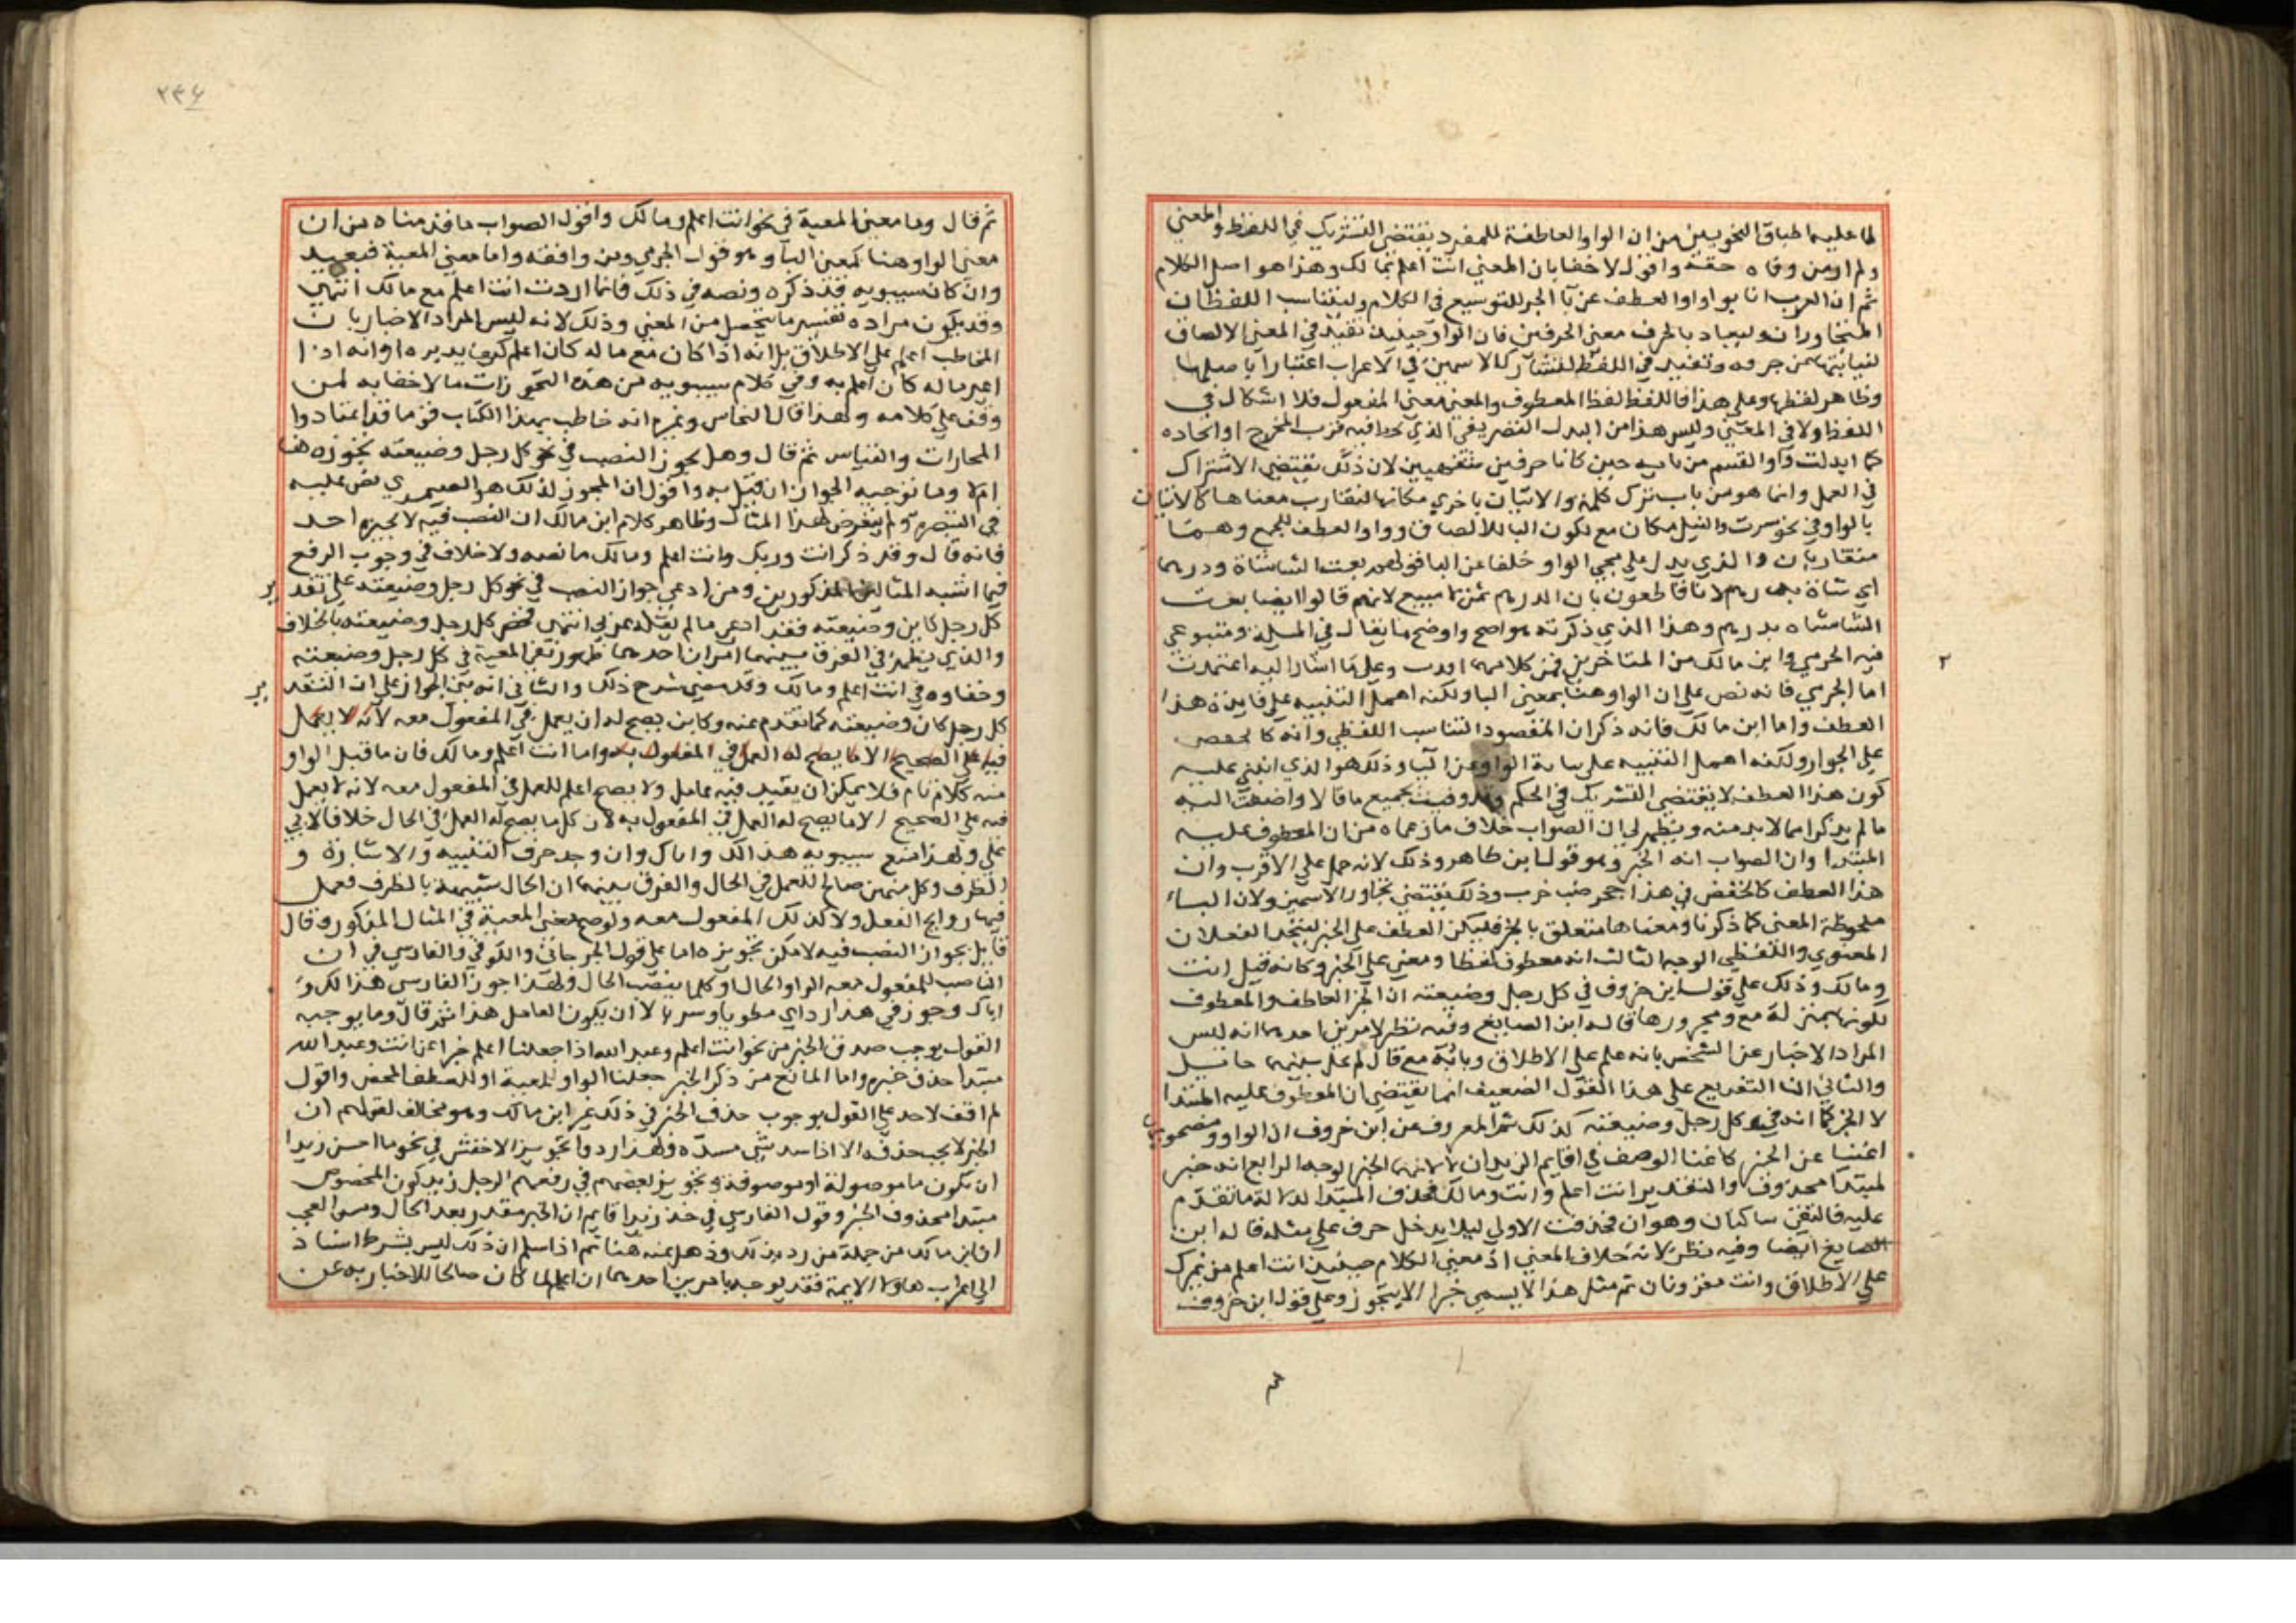 لما عليه اطباق النحويين من ان الواو العاطفة للمفرد يقتضي التشريك في اللفظ والمعني
ولم ومن وفاه حقه واقول لا خفا بان المعني انت اعلم بمالك وهذا هو اصل الكلام
ثم ان العرب انابوا واو العطف عن با الجر للتوسيع في الكلام وليتناسب اللفظان
المتجاوران بالحرف معني الحرفين فان الواو حينيذ تفيد في المعني الالصاق
لنيابتها عن حرفه وتفيد في اللفظ للتشارك الاسمين في الاعراب اعتبارا باصلها
وظاهر لفظها وعلي هذا فاللفظ لفظ المعطوف والمعني معني المفعول فلا اشكال في
اللفظ ولا في المعني وليس هذا من البدل التصريفي الذي فيه قرب المخرج او اتحاده
كما ابدلت واو القسم من بايه حين كانا حرفين لان ذلك يقتضي الاشتراك
في العمل وانما هو من باب ترك كلمة والاتيان باخري مكانها لتقارب معناها كالاتيان
بالواو في نحو سرت والنيل مكان مع لكون البا للالصاق وواو العطف للجمع وهما
متقاربان والذي يدل علي مجي الواو خلفا عن البا قولهم بعت الشا شاة ودرهما
اي شاة بدرهم لانا قاطعون بان الدرهم ثمن لا مبيع لانهم قالوا ايضا بعت
الشا شاه بدرهم وهذا الذي ذكرته هو اصح واوضح ما يقال في المسيلة ومتبوعي
فيه الجرمي وابن مالك من المتاخرين فمن كلامهما وعلي ما اشارا اليه اعتمدت
اما الجرمي فانه نص علي ان الواو هنا بمعني البا ولكنه اهمل التنبيه علي فايدة هذا
العطف واما ابن مالك فانه ذكر ان المقصود التناسب اللفظي وانه كالخفض
علي الجوار ولكنه اهمل التنبيه علي نيابة الواو عن البا وذلك هو الذي انبني عليه
كون هذا العطف لا يقتضي التشريك في الحكم وقد وفيت بجميع ما قالا واضفت اليه
ما لم يذكرا مما لا بد منه ويظهر لي ان الصواب خلاف ما زعماه من ان المعطوف عليه
المبتدا وان الصواب انه الخبر وهو قول ابن طاهر وذلك لانه حمل علي الاقرب وان
هذا العطف كالخفض في هذا جحر ضب خرب وذلك يقتضي تجاور الاسمين ولان الباء
ملحوظة المعني كما ذكرنا ومعناها متعلق بالخبر فليكن العطف علي الخبر ليتحد
المعنوي واللفظي الوجه الثالث انه معطوف لفظا ومعني علي الخبر وكانه قيل انت
ومالك وذلك علي قول ابن خروف في كل رجل وضيعته ان الخبر العاطف والمعطوف
لكونها بمنزلة مع ومجرورها قاله ابن الصايغ وفيه نظر لامرين احدهما انه ليس
المراد الاخبار عن الشخص بانه علم علي الاطلاق
والثاني ان التفريع علي هذا القول الضعيف انما يقتضي ان المعطوف عليه المبتدا
لا الخبر كما انه في كل رجل وضيعته كذلك ثم المعروف عن ابن خروف ان الواو ومصحوبها
اغنيا عن الخبر كاغنا الوصف في اقايم الزيدان لا انهما الخبر الوجه الرابع انه خبر
لمبتدا محذوف والتقدير انت اعلم وانت ومالك فحذف المبتدا لدلالة ما تقدم
عليه فالتقي ساكنان وهوان فحذفت الاولي ليلا يدخل حرف علي مثله قاله ابن
الصايغ ايضا وفيه نظر لانه خلاف المعني اذ معني الكلام حينيذ انت اعلم من غيرك
علي الاطلاق وانت مقرونان ثم مثل هذا لا يسمي خبرا الا بتجوز وعلي قول ابن خروف
٢
٢٣٤
ثم قال وما معني المعية في نحو انت اعلم ومالك واقول الصواب ما قدمناه من ان
معني الواو هنا كمعني البا وهو قول الجرمي ومن وافقه واما معني المعية فبعيد
وان كان سيبويه قد ذكره ونصه في ذلك فانما اردت انت اعلم مع مالك انتهي
وقد يكون مراده تفسير ما يتحصل من المعني وذلك لانه ليس المراد الاخبار بان
المخاطب اعلم علي الاطلاق بل انه اذا كان مع ماله كان اعلم كيف يدبره او انه اذا
ماله كان اعلم به وفي كلام سيبويه من هذه التجوزات ما لا خفا به لمن
وقف علي كلامه ولهذا قال النحاس وغيره انه خاطب بهذا الكتاب قوما قد اعتادوا
المجازات والقياس ثم قال وهل يجوز النصب في نحو كل رجل وضيعته
ام لا وما توجيه الجواز ان قيل به واقول ان المجوز لذلك هو الصيمري نص عليه
في التبصرة ولم يتعرض لهذا المثال وظاهر كلام ابن مالك ان النصب فيه لا يجيزه احد
فانه قال وقد ذكر انت وربك وانت اعلم ومالك ما نصه ولا خلاف في وجوب الرفع
فيما اشبه المثالين المذكورين ومن ادعي جواز النصب في نحو كل رجل وضيعته علي تقدير
كل رجل كاين وضيعته فقد ادعي ما لم يقله عربي انتهي فخص كل رجل وضيعته بالخلاف
والذي يظهر في الفرق بينهما امران احدهما ظهور معني المعية في كل رجل وضيعته
وخفاوه في انت اعلم ومالك وقد مضي شرح ذلك والثاني انه بني الجواز علي ان التقدير
كل رجل كان وضيعته كما تقدم عنه وكاين يصح له ان يعمل في المفعول معه لانه لا يعمل
فيه علي الصحيح الا ما يصح له العمل في المفعول به واما انت اعلم ومالك فان ما قبل الواو
منه كلام تام فلا يمكن ان يقدر فيه عامل ولا يصح اعلم للعمل في المفعول معه لانه لا يعمل
فيه علي الصحيح الا ما يصح له العمل في المفعول به لان كل ما يصح له العمل في الحال خلافا لابي
علي ولهذا منع سيبويه هذا لك واباك وان وجد حرف التنبيه والاشارة و
الظرف وكل منهن صالح للعمل في الحال والفرق بينهما ان الحال شبيهة بالظرف فعمل
فيها روايح الفعل ولا كذلك المفعول معه ولوضح معني المعية في المثال المذكور وقال
قايل بجواز النصب فيه لامكن تجويزه اما علي قول الجرجاني والكوفي والفارسي في ان
الناصب للمفعول معه الواو كلما ينصب الحال ولهذا جوز الفارسي هذا لك و
اباك وجوز في هذا رداي مطويا وسربالا ان يكون العامل هذا ثم قال وما يوجبه
القول بوجوب حذف الخبر من نحو انت اعلم وعبد الله اذا جعلنا اعلم خبرا عن انت وعبد الله
مبتدا حذف خبره واما المانع من ذكر الخبر جعلنا الواو للمعية او للعطف المحض واقول
لم اقف لاحد علي القول بوجوب حذف الخبر في ذلك غير ابن مالك وهو مخالف لقولهم ان
الخبر لا يجب حذفه الا اذا سد شي مسده ولهذا ردوا تجويز الاخفش في نحو ما احسن زيدا
ان تكون ما موصولة او موصوفة وتجويز بعضهم في نعم الرجل زيد كون المخصوص
مبتدا محذوف الخبر وقول الفارسي في ضربي زيدا قايم ان الخبر مقدر بعد الحال ومن العجب
ان ابن مالك من جملة من رد بذلك وذهل عنه هنا ثم اذا سلم ان ذلك ليس بشرط استنادا
الي اعراب هاولا الايمة فقد يوجه بامرين احدهما ان اعلم لما كان صالحا للاخبار به عن